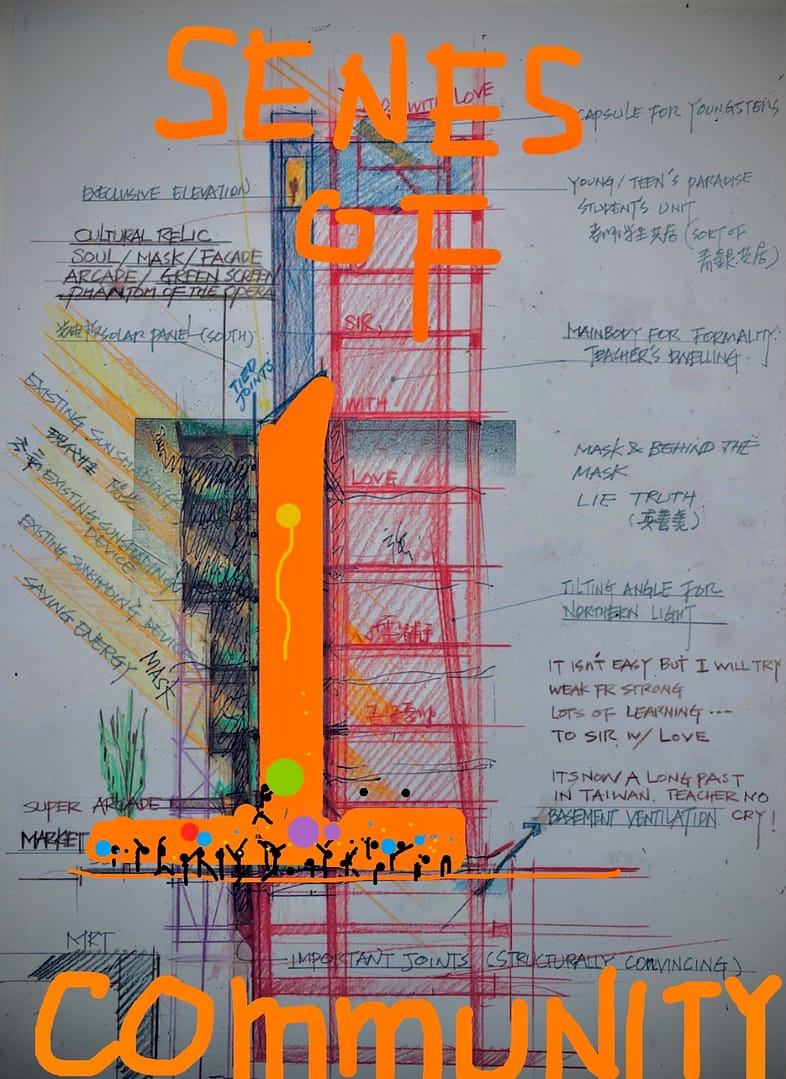 SENES
OF
WITH LOVE
CAPSULE FOR YOUNGSTERS
EXECLUSIVE ELEVATION
YOUNG / TEEN'S PARADISE
STUDENT'S UNIT
(SORT OF
青銀共居)
CULTURAL RELIC
SOUL / MASK / FACADE
ARCADE / GREEN SCREEN
PHANTOM OF THE OPERA
SOLAR PANEL (SOUTH)
SIR,
MAINBODY FOR FORMALITY:
TEACHER'S DWELLING
TIED
JOINTS
WITH
EXISTING SUNSHADING
MASK & BEHIND THE
MASK
LIE TRUTH
LOVE
EXISTING SUNSHADING
DEVICE
EXISTING SUNSHADING DEVICE
SAVING ENERGY
MASK
TILTING ANGLE FOR
NORTHERN LIGHT
IT ISN'T EASY BUT I WILL TRY
WEAK FR STRONG
LOTS OF LEARNING ---
TO SIR W/ LOVE
ITS NOW A LONG PAST
IN TAIWAN. TEACHER NO
CRY!
BASEMENT VENTILATION
SUPER ARCADE
MARKET
MRT
IMPORTANT JOINTS (STRUCTURALLY CONVINCING)
COmmUNITY